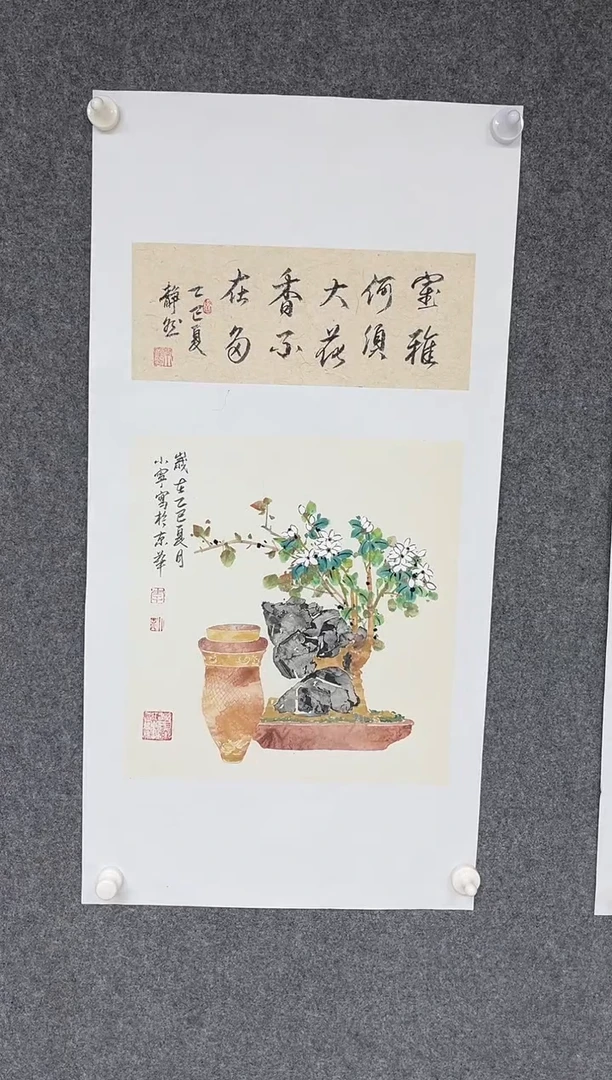 室雅
何須
大花
香不
在多
乙巳夏
靜然
歲在乙巳夏月
小寧寫於京華